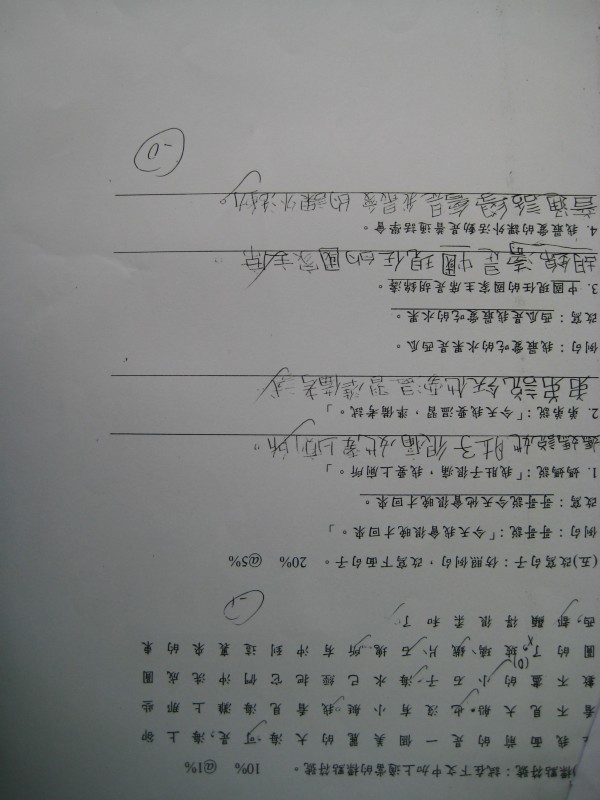 標點符號：試在下文中加上適當的標點符號。 10% @1%
我面前的是一個美麗的大海,可是,海上卻
看不見大船,也沒有小艇。我看見海灘上那些
數不盡的小石子,海水已經把它們沖洗成圓
圓的了。玻璃、鐵片、石塊,所有沖到這裏來的東
西,都顯得很柔和了
(五)改寫句子：仿照例句，改寫下面句子。 20% @5%
例句：哥哥說：「今天我會很晚才回來。」
改寫：哥哥說今天他會很晚才回來。
1. 媽媽說：「我肚子很痛，我要上廁所。」
媽媽說她肚子很痛她要上廁所。
2. 弟弟說：「今天我要溫習，準備考試。」
弟弟說今天他要溫習準備考試
例句：我最愛吃的水果是西瓜。
改寫：西瓜是我最愛吃的水果。
3. 中國現任的國家主席是胡錦濤。
胡錦濤是中國現任的國家主席。
4. 我最愛的課外活動是普通話學會。
普通話學會是我最愛的課外活動。